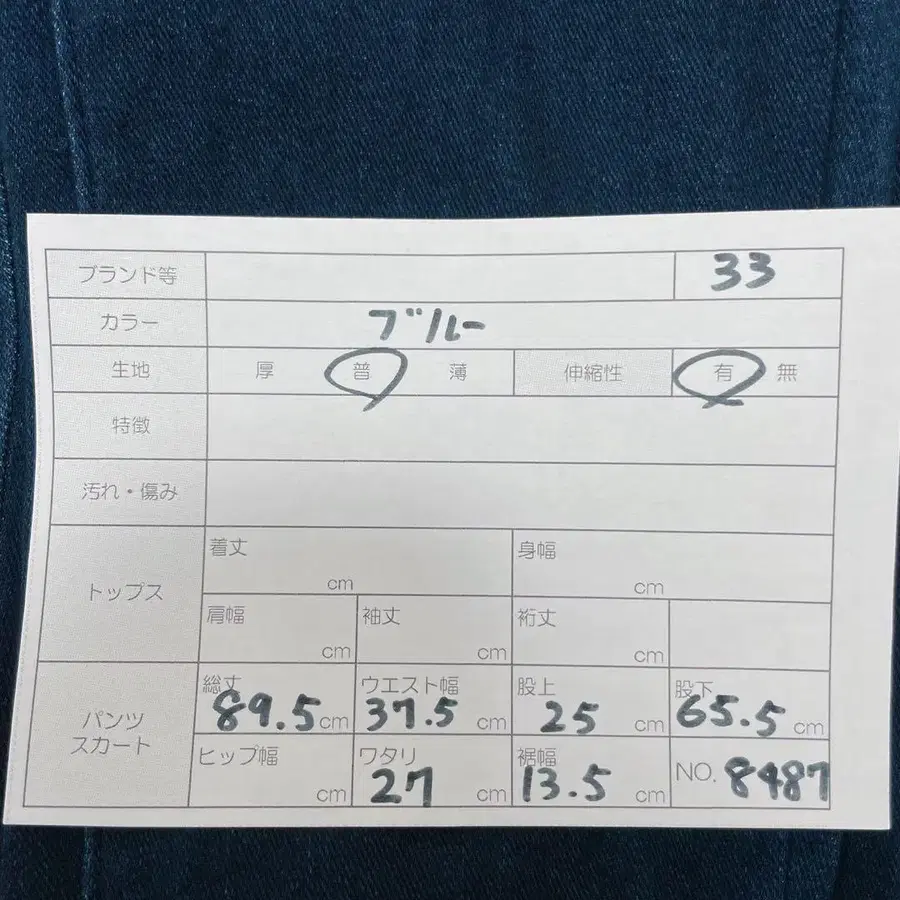 ブランド等 33
カラー ブルー
生地 厚 普 薄 伸縮性 有 無
特徴
汚れ・傷み
トップス
着丈 cm 身幅 cm
肩幅 cm 袖丈 cm 裄丈 cm
パンツ
スカート
総丈 89.5cm ウエスト幅 37.5 cm 股上 25 cm 股下 65.5 cm
ヒップ幅 cm ワタリ 27 cm 裾幅 13.5 cm NO. 8487